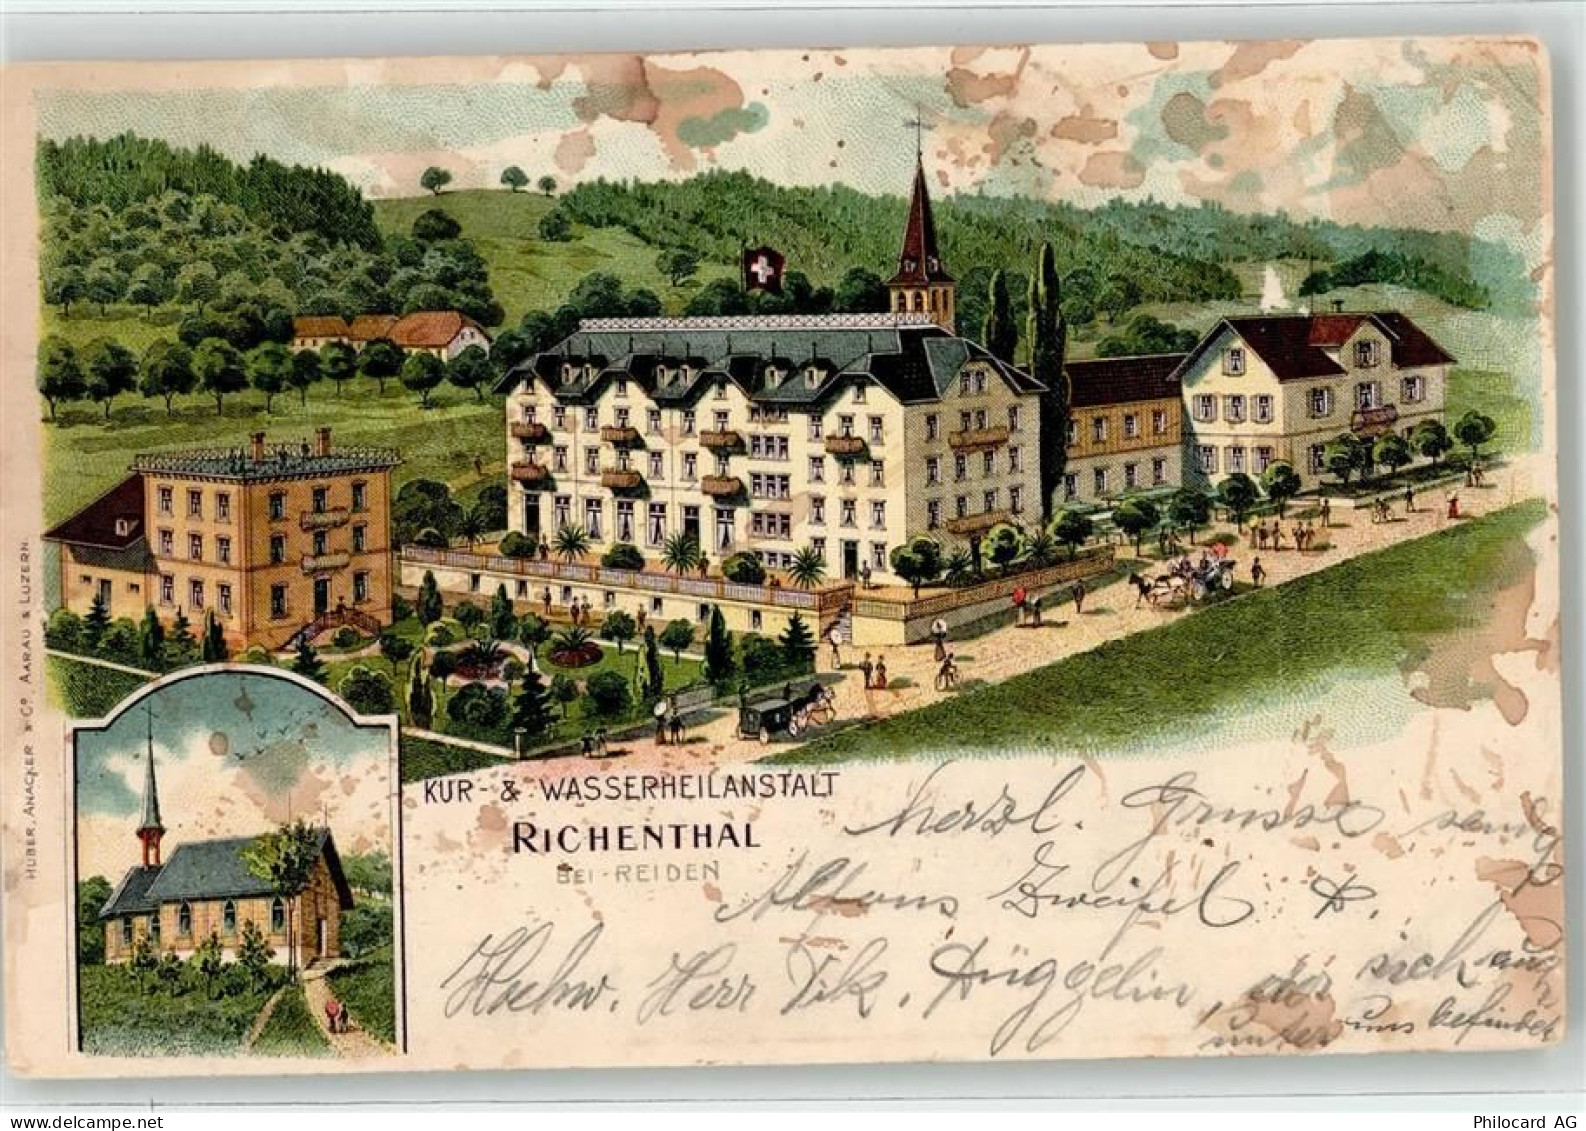 KUR- & WASSERHEILANSTALT
RICHENTHAL
BEI REIDEN
HUBER, ANACKER & Cº, AARAU & LUZERN.
Herzl. Grüsse
Alfons Zweifel
Hochw. Herr Vik. Hüggelin, der sich auch
unter uns befindet
Philocard AG